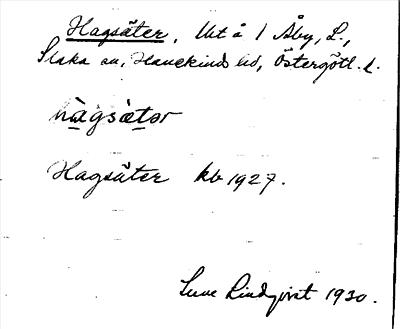 Hagsäter. Utå 1 Åby, L.,
Slaka sn, Hanekinds hd, Östergötl. l.
hagsätər
Hagsäter kb 1927.
Sune Lindqvist 1930.